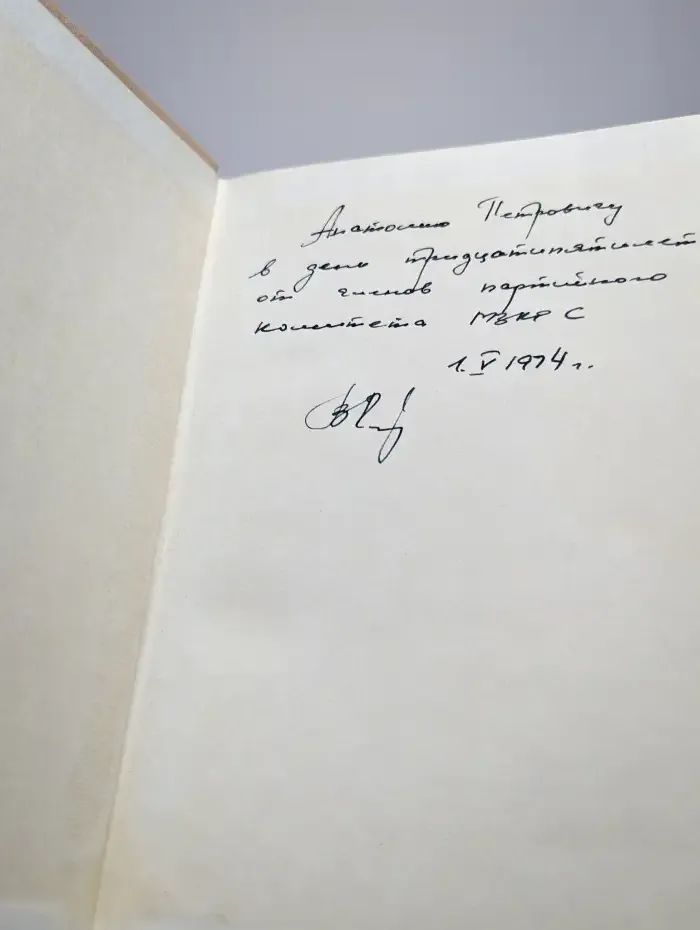 Анатолию Петровичу
в день тридцатипятилет
от членов партийного
комитета МВКРС
1. V 1974 г.